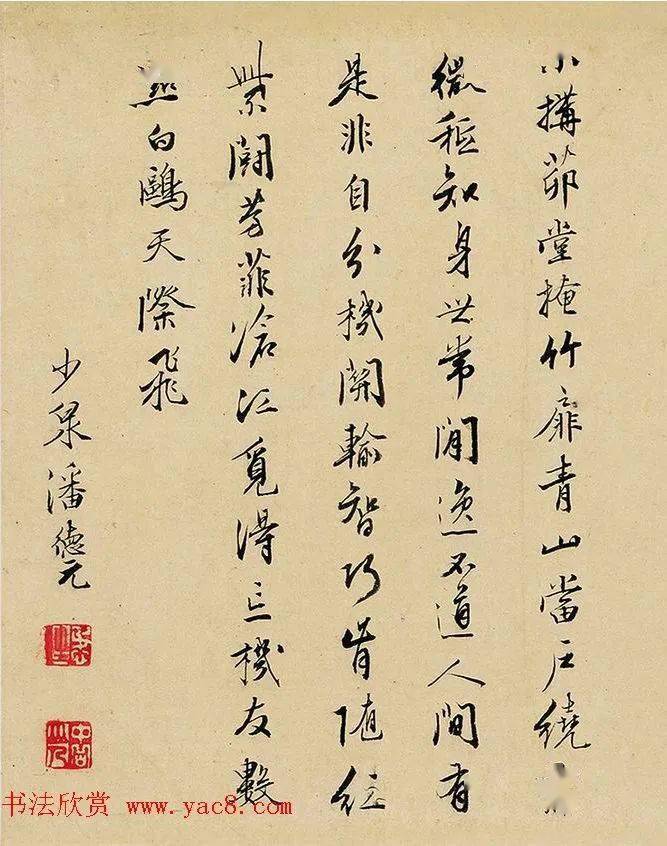 小構茆堂掩竹扉青山當戶繞
微極知身世常閒逸不道人間有
是非自分機關輸智巧肯隨紅
紫鬪芳菲滄江覓得忘機友數
點白鷗天際飛
少泉潘德元
书法欣赏 www.yac8.com